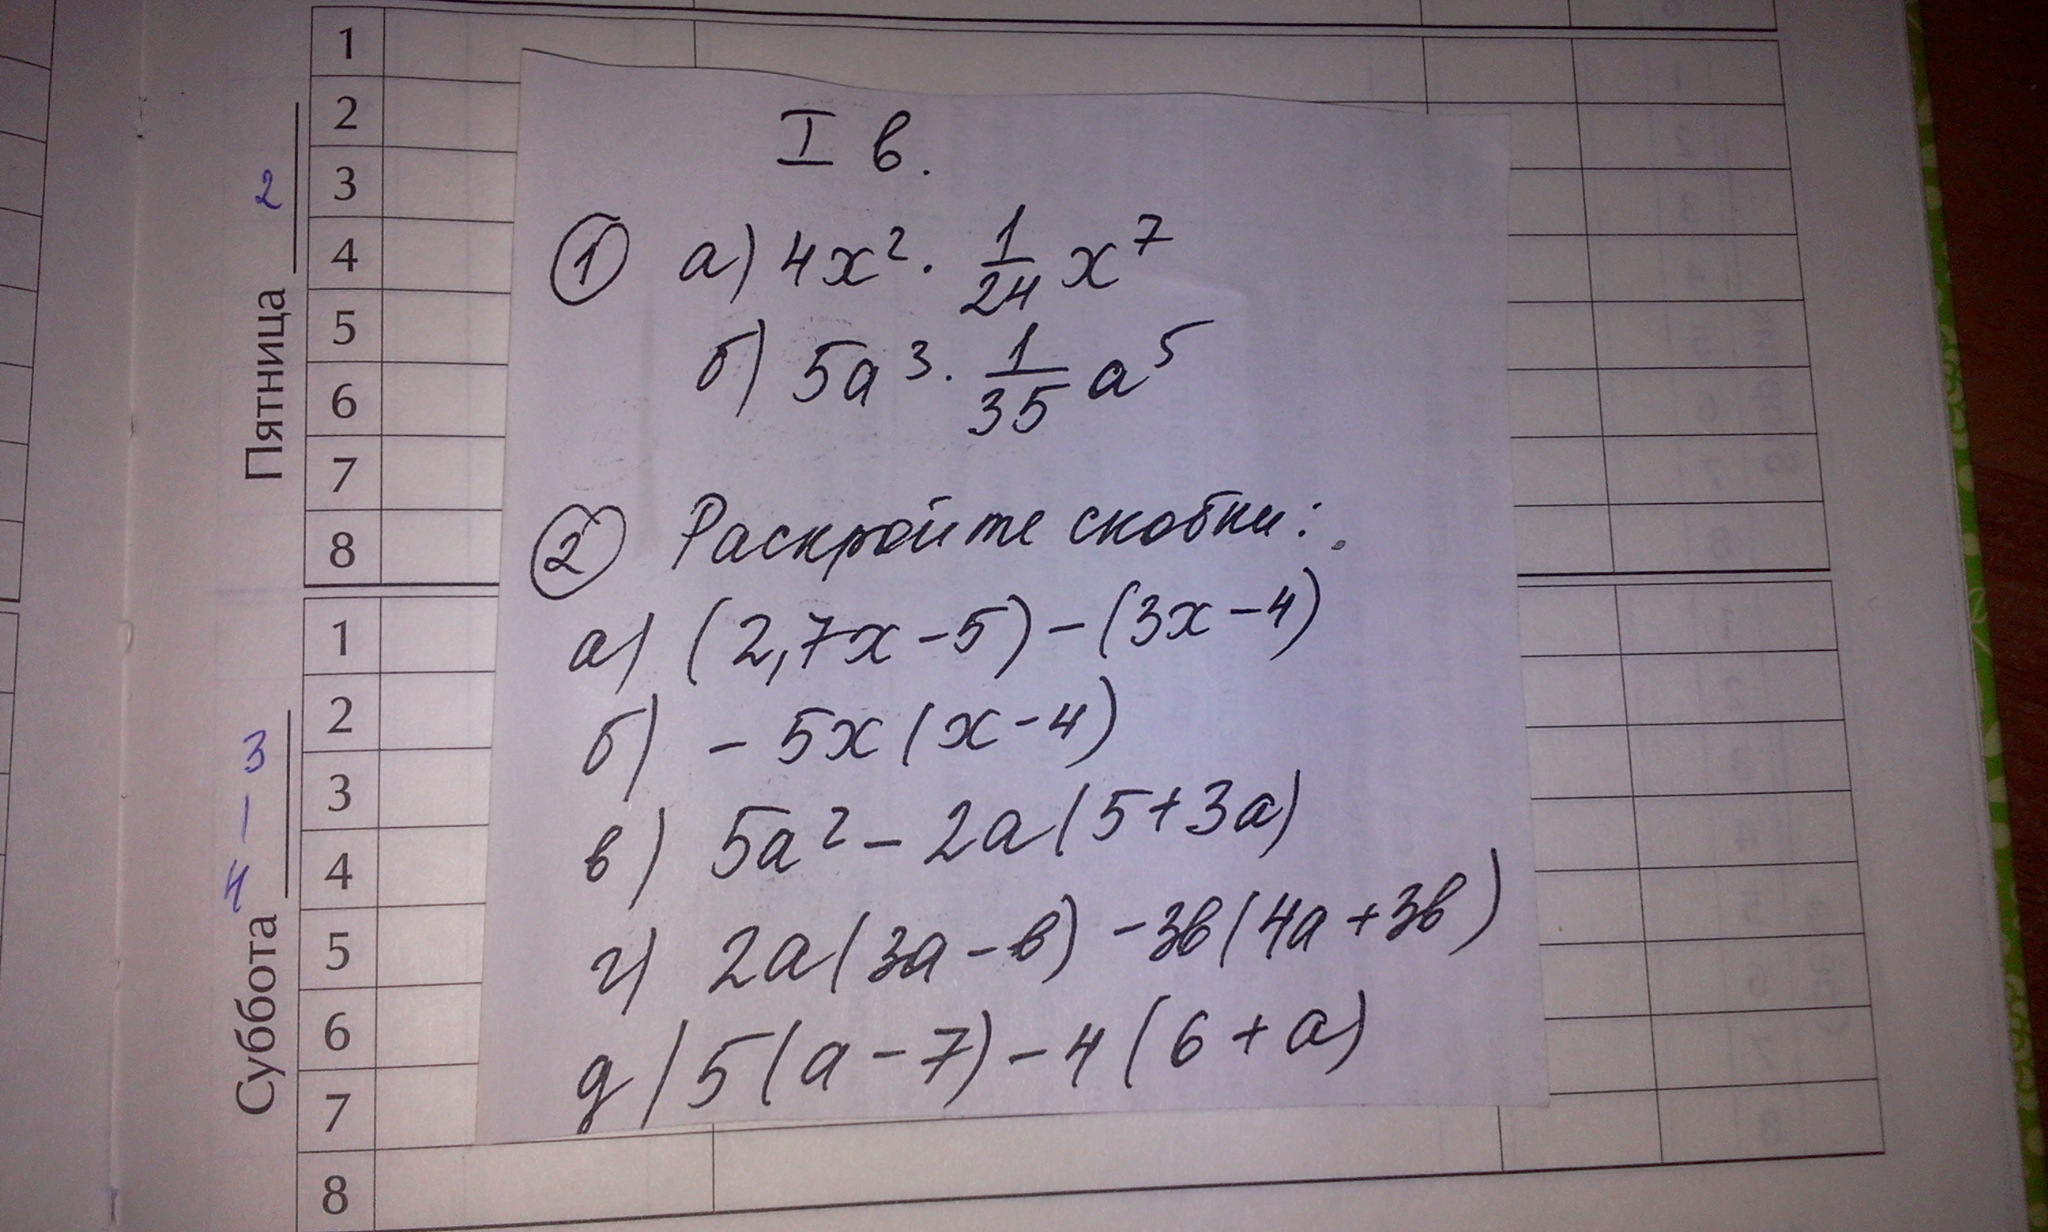 Пятница 2
1
2
3
4
5
6
7
8
Суббота 4 – 3
1
2
3
4
5
6
7
8
I в.
① а) 4x² · 1/24 x⁷
б) 5a³ · 1/35 a⁵
② Раскройте скобки:
а) (2,7x – 5) – (3x – 4)
б) – 5x (x – 4)
в) 5a² – 2a (5 + 3a)
г) 2a (3a – в) – 3в (4a + 3в)
д) 5 (a – 7) – 4 (6 + a)